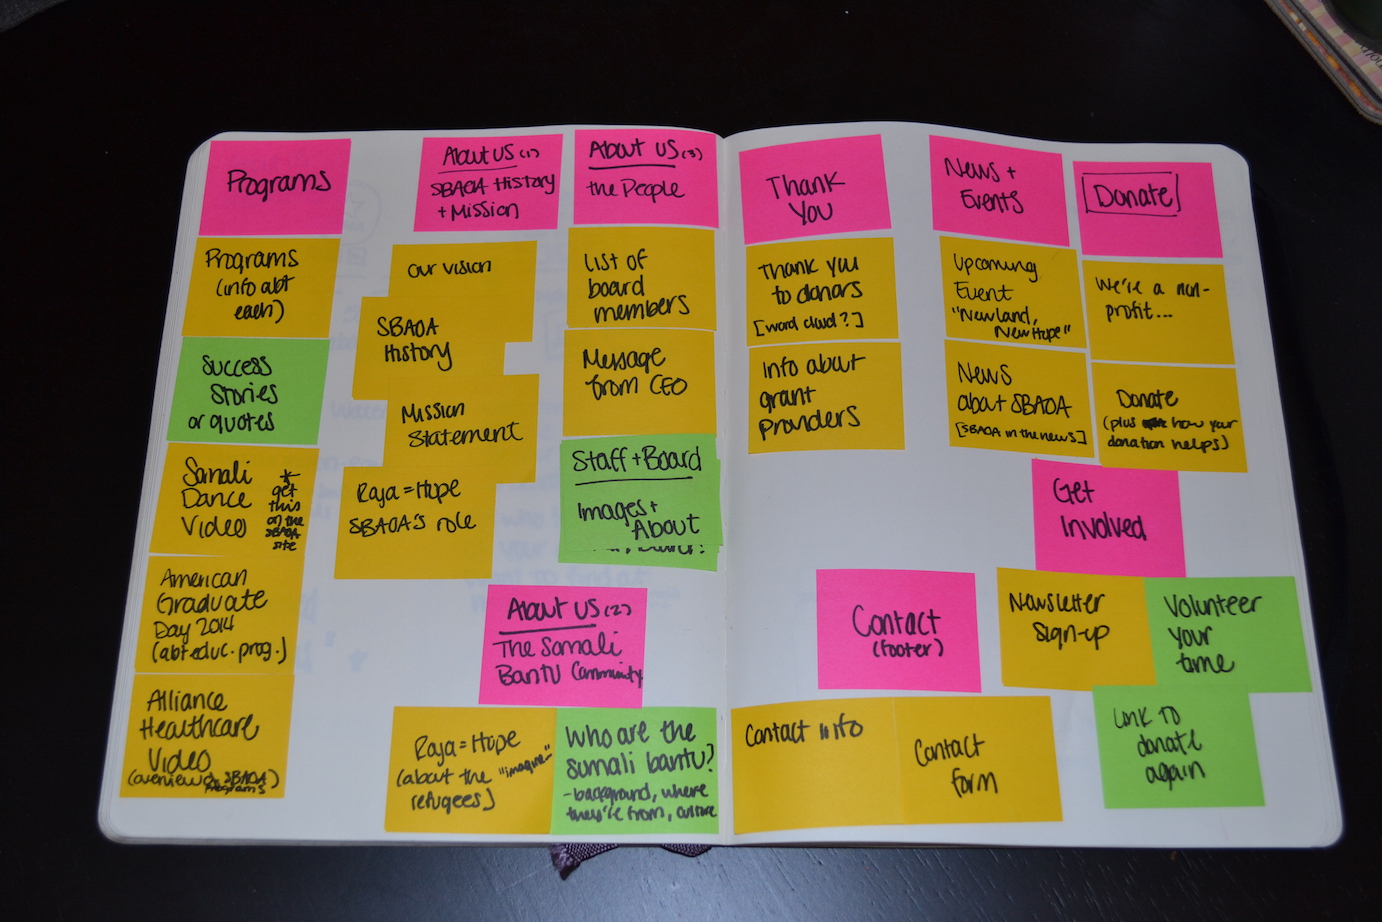 Programs
Programs
(info abt
each)
Success
Stories
or quotes
Somali
Dance
Video
* get
this
on the
SBAOA
site
American
Graduate
Day 2014
(abt educ. prog.)
Alliance
Healthcare
Video
(overview of SBAOA
programs)
About US (1)
SBAOA History
+ Mission
our vision
SBAOA
History
Mission
Statement
Raja = Hope
SBAOA's role
About US (3)
the People
List of
board
members
Message
from CEO
Staff + Board
Images +
About
About US (2)
The Somali
Bantu Community
Raja = Hope
(about the "imagine"
refugees)
Who are the
Somali bantu?
- background, where
they're from, culture
Thank
You
Thank you
to donors
[word cloud?]
Info about
grant
providers
News +
Events
Upcoming
Event
"New land,
New Hope"
News
about SBAOA
[SBAOA in the news]
Donate
We're a non-
profit...
Donate
(plus how your
donation helps)
Get
Involved
Newsletter
sign-up
Volunteer
your
time
Link to
donate
again
Contact
(footer)
Contact info
Contact
form